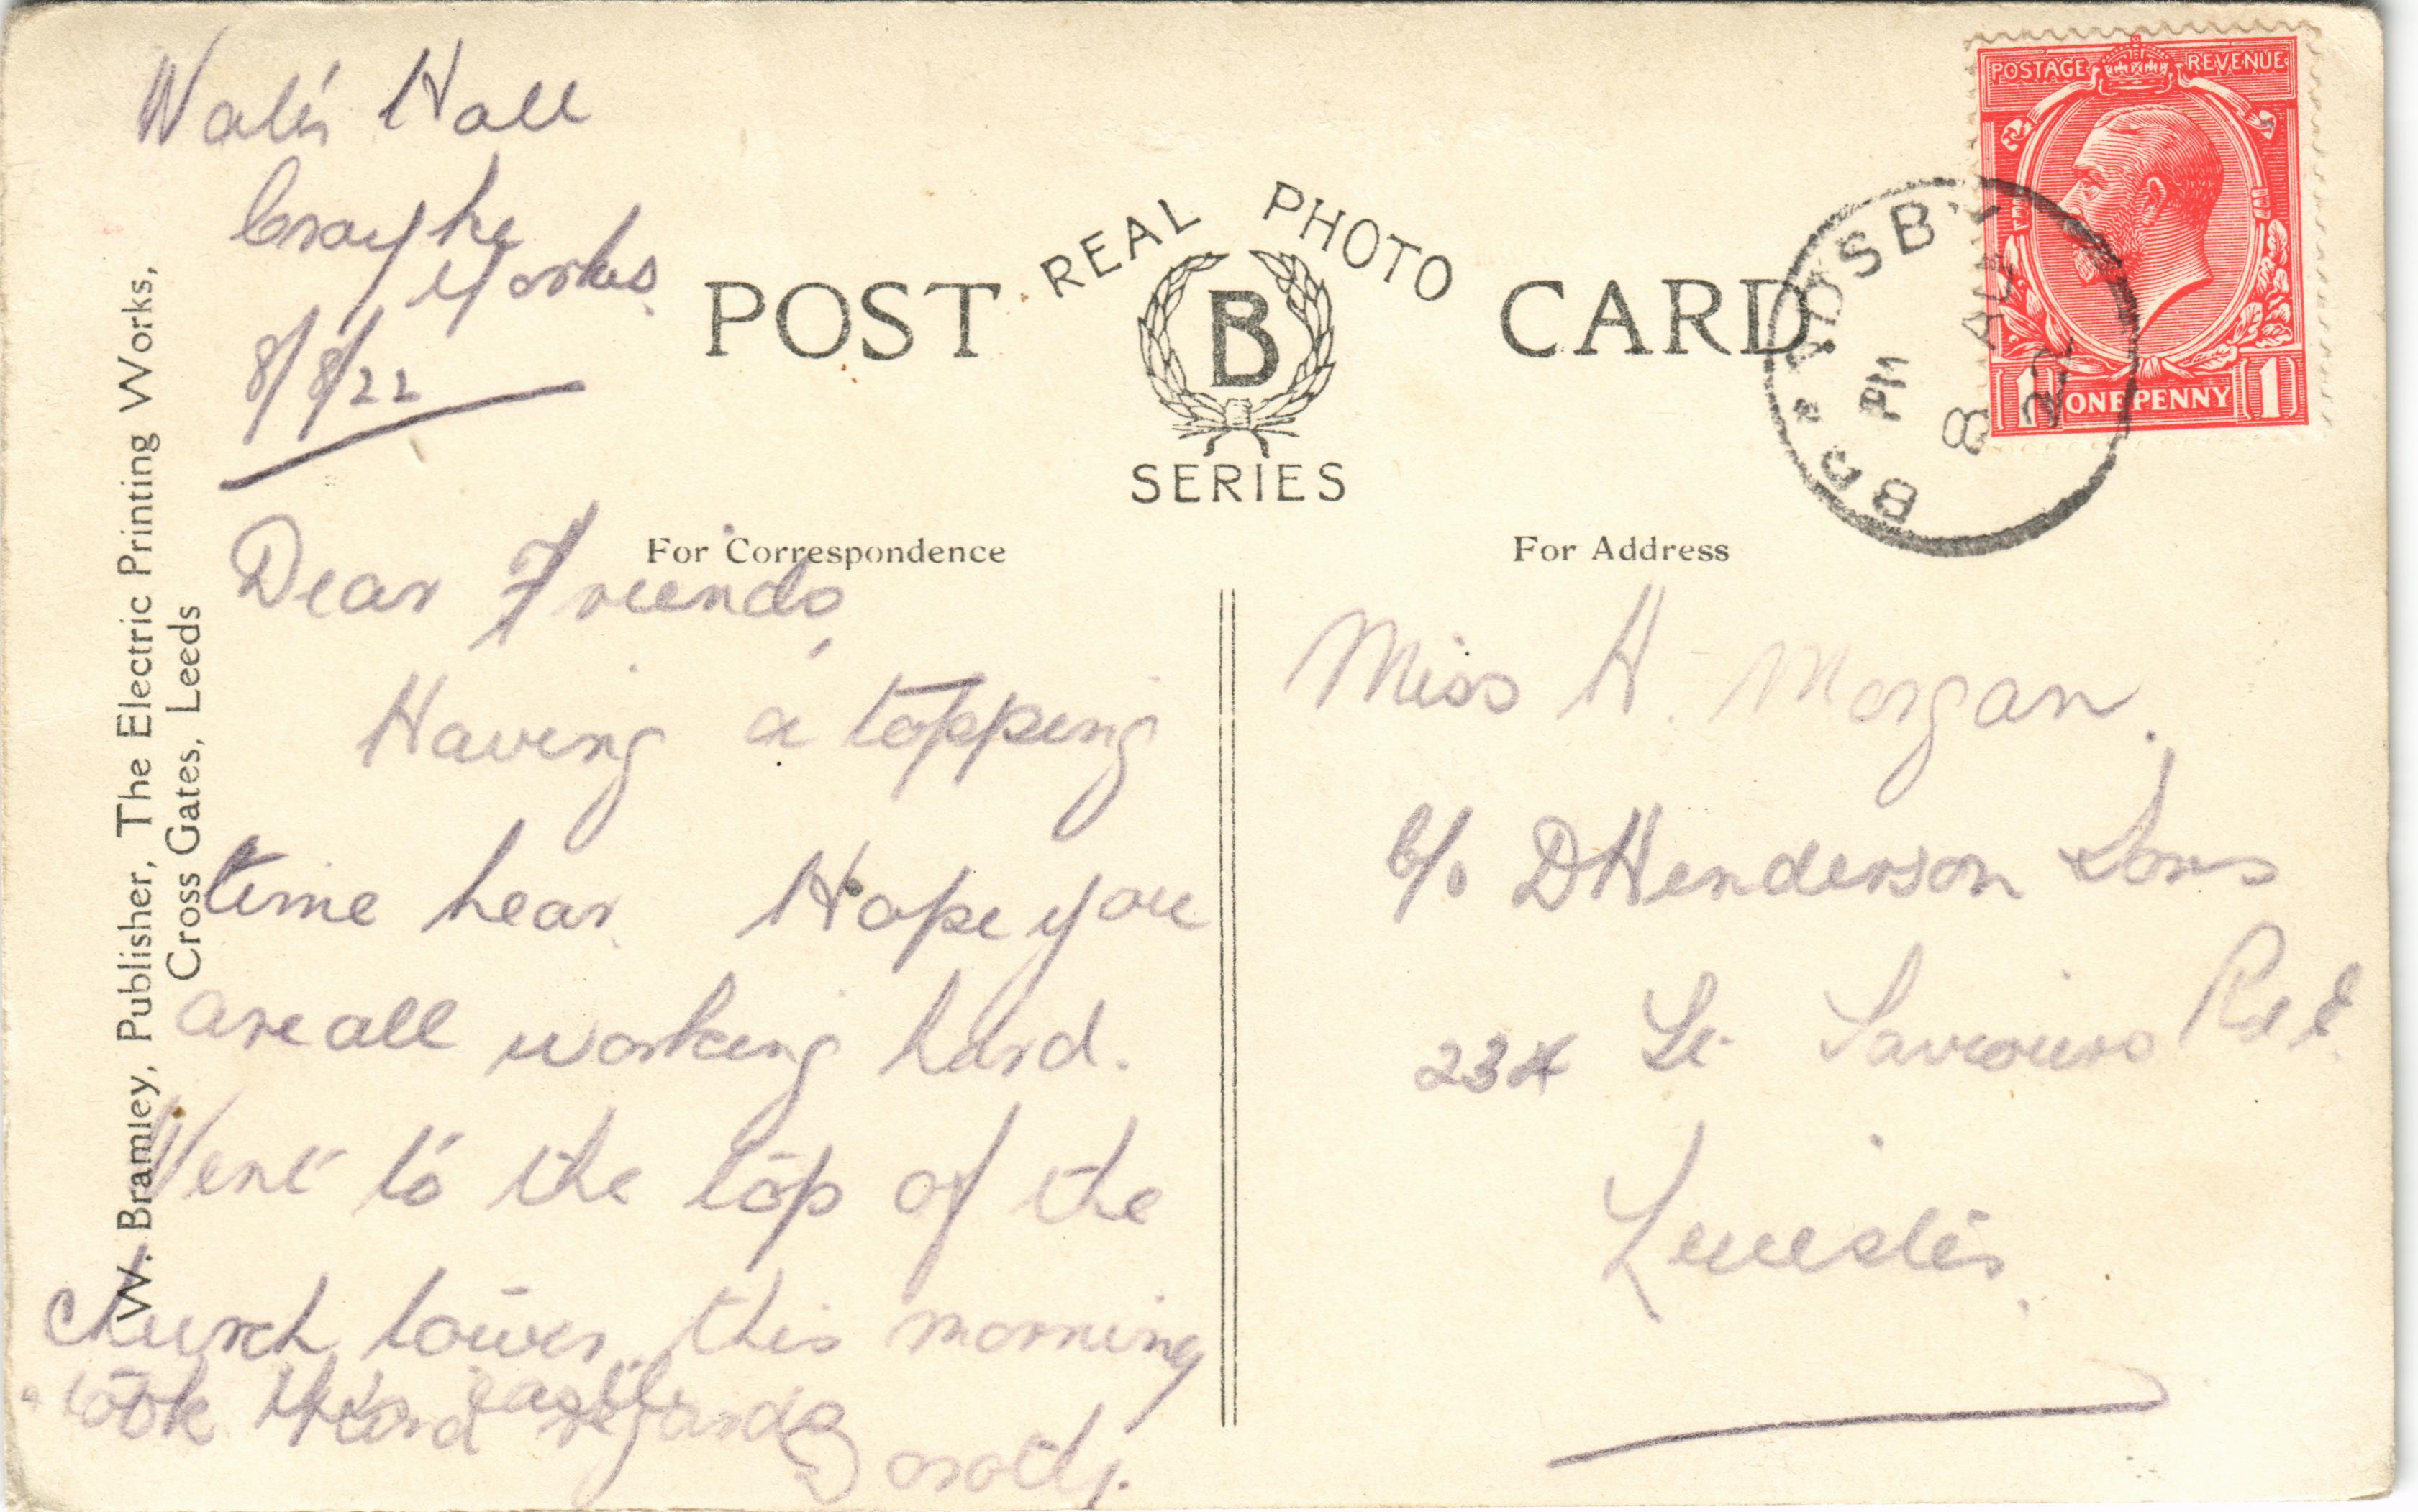 Hall
Crayke
Yorks.
8/8/22
POST CARD
REAL PHOTO
B
SERIES
POSTAGE REVENUE
1 ONE PENNY 1
PM
8 AU
22
W. Bramley, Publisher, The Electric Printing Works,
Cross Gates, Leeds
For Correspondence
For Address
Dear Friends,
Having a topping
time hear. Hope you
are all working hard.
Went to the top of the
church tower this morning
took
Kind regards
Dorothy.
Miss H. Morgan.
C/o D Henderson Sons
234 St. Saviours Rd E.
Leicester.